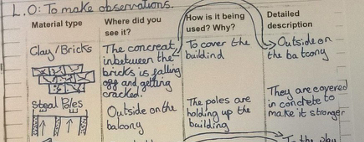 L.O: To make observations.
Material type
Where did you
see it?
How is it being
used? Why?
Detailed
description
Clay/Bricks
The concreat
inbetween the
bricks is falling
off and getting
cracked.
To cover the
buildind
Outside on
the balcony
Steal Poles
Outside on the
balcony
The poles are
holding up the
building
They are covered
in concrete to
make it stronger